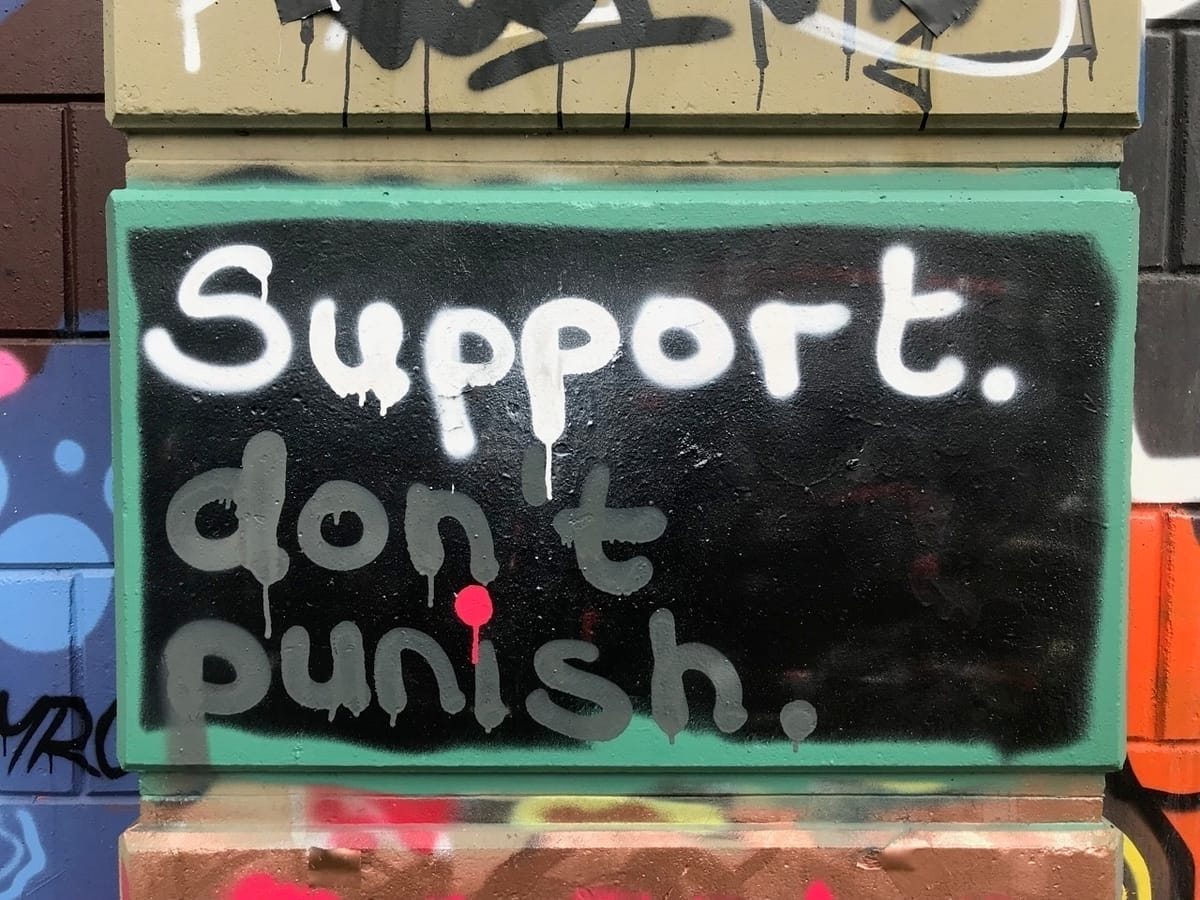 Support.
don't
punish.